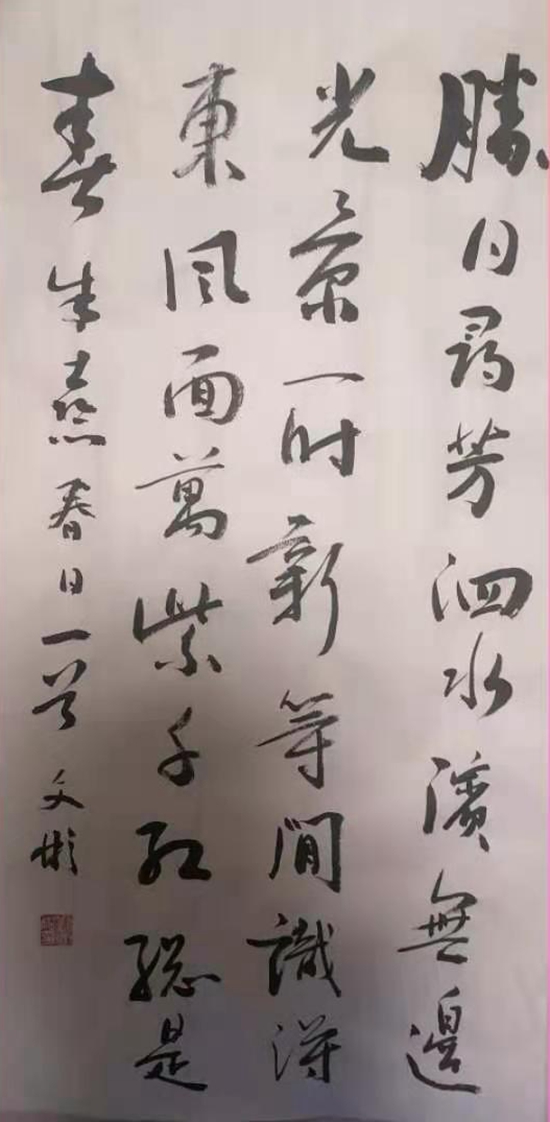 勝日尋芳泗水濱無邊
光景一时新等閒識得
東風面萬紫千红總是
春朱熹春日一首文彬